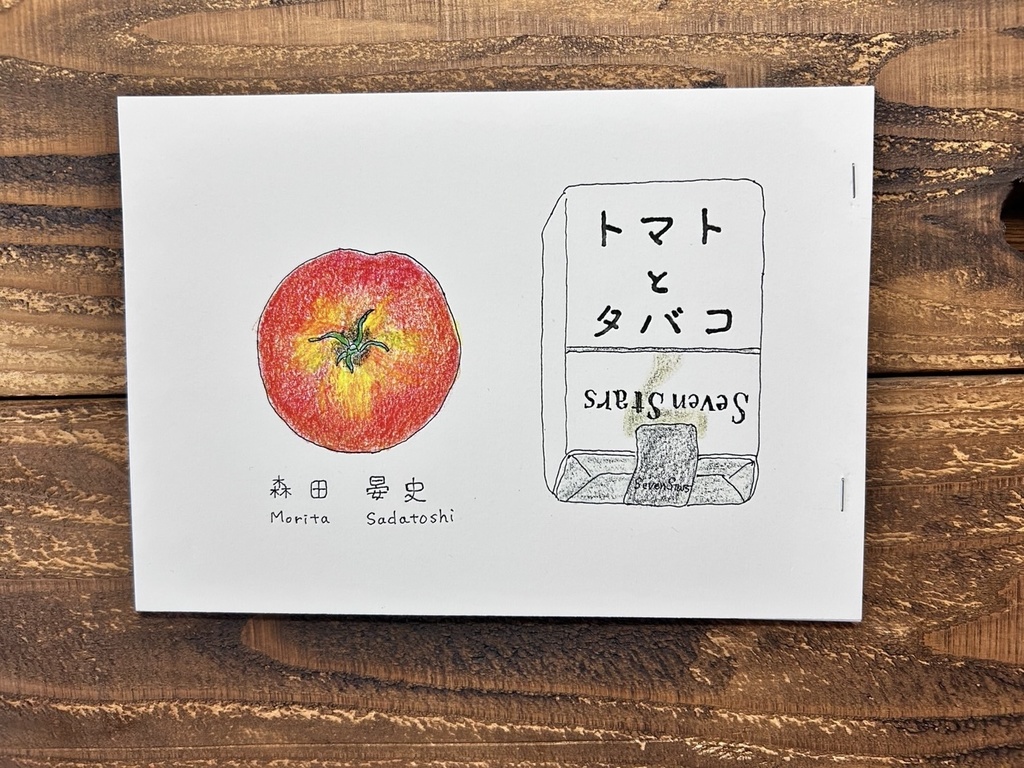 トマト
と
タバコ
Seven Stars
SevenStars
森田 晏史
Morita Sadatoshi